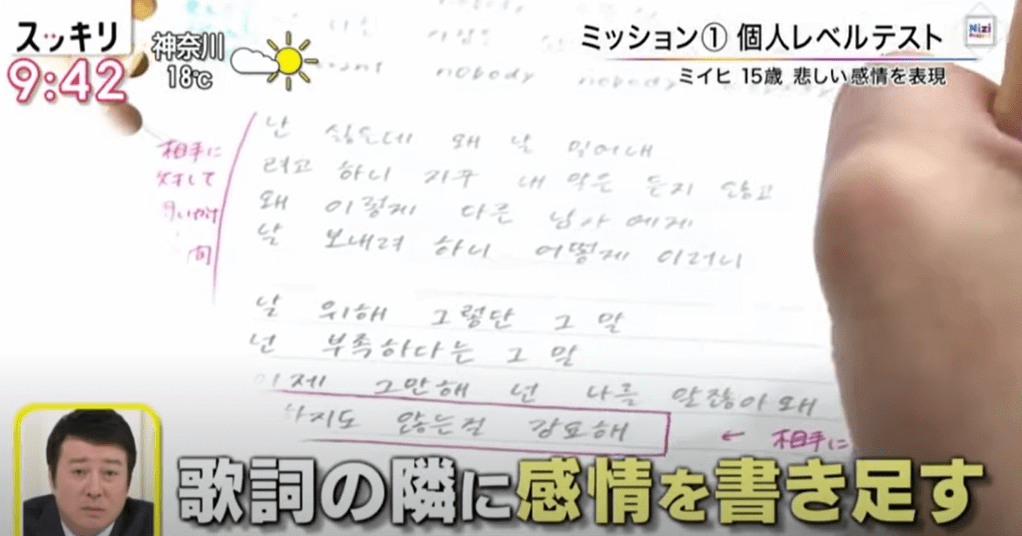 スッキリ
9:42
神奈川
18℃
ミッション① 個人レベルテスト
Nizi
Project
ミイヒ 15歳 悲しい感情を表現
nobody
nobody nobody
난 싫은데 왜 날 밀어내
려고 하니 자꾸 내 말은 듣지 않고
왜 이렇게 다른 남자 에게
날 보내려 하니 어떻게 이러니
相手に
対して
間
날 위해 그렇단 그 말
넌 부족하다는 그 말
이제 그만해 넌 나를 알잖아 왜
하지도 않는걸 강요해
← 相手に
歌詞の隣に感情を書き足す